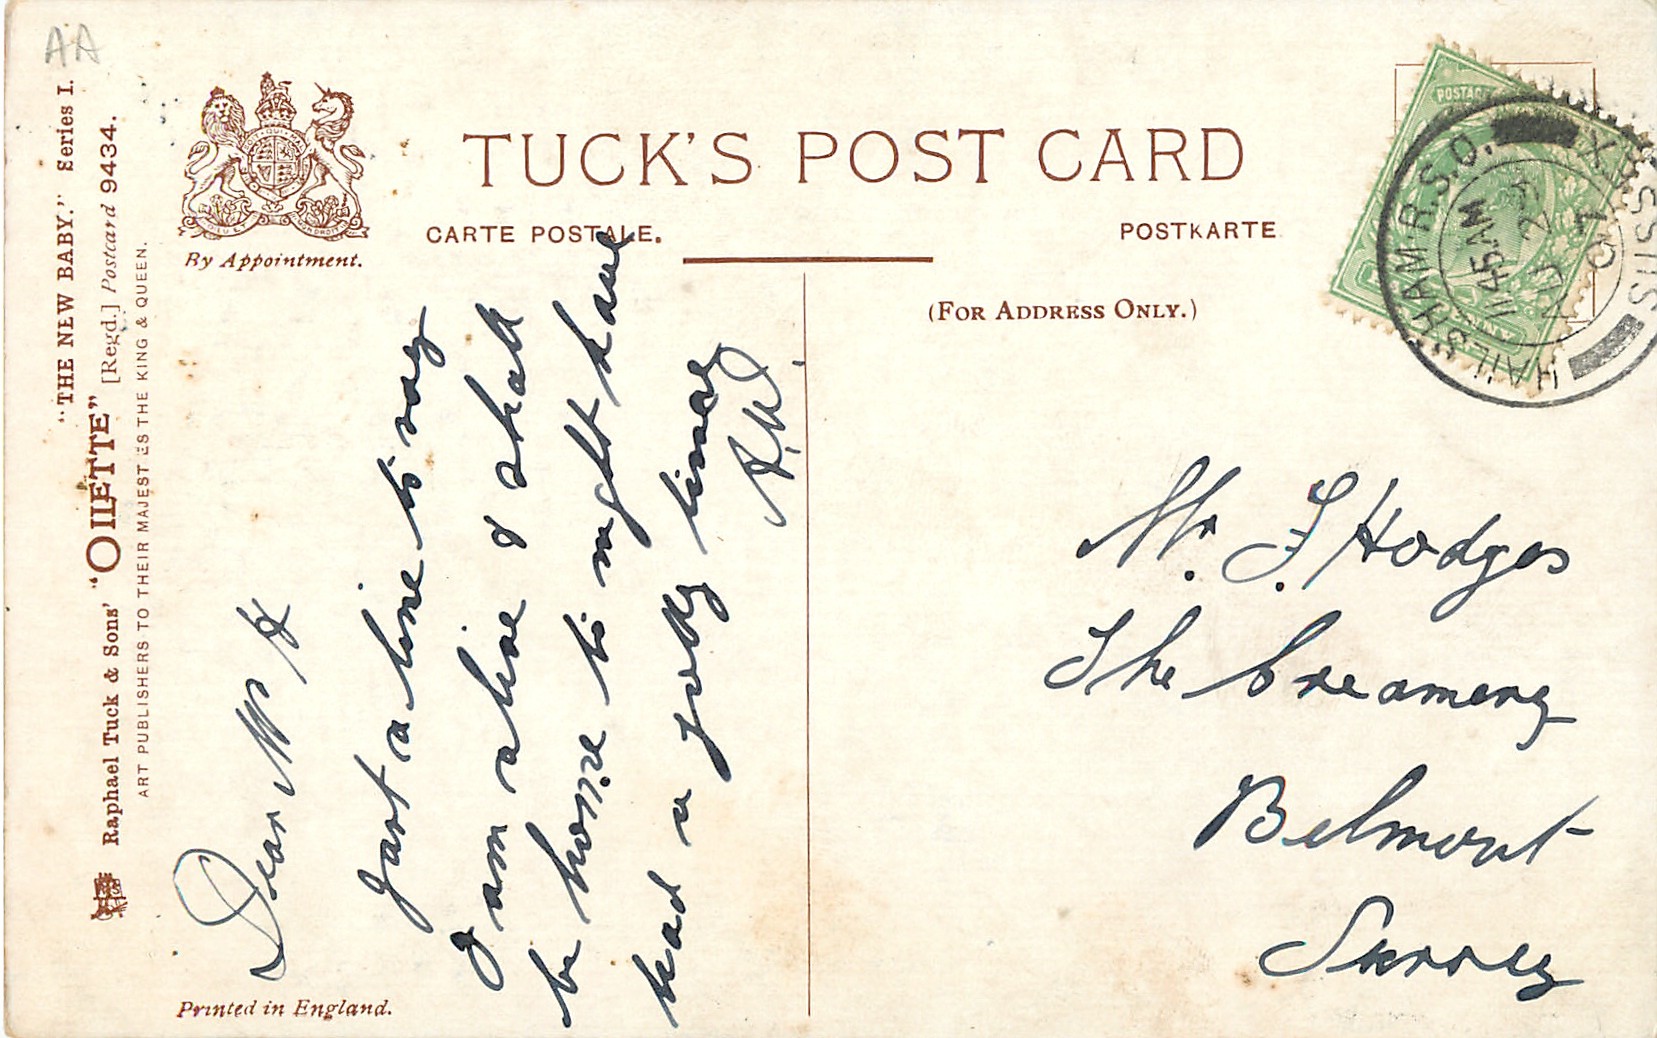 AA
"THE NEW BABY." Series I.
Raphael Tuck & Sons' "OILETTE" [Regd.] Postcard 9434.
ART PUBLISHERS TO THEIR MAJESTIES THE KING & QUEEN.
By Appointment.
TUCK'S POST CARD
CARTE POSTALE.
POSTKARTE
(FOR ADDRESS ONLY.)
POSTAGE
HAILSHAM R.S.O.
SUSSEX
11.45 AM
AU 24
07
Dear Mr H
Just a line to say
I am alive & shall
be home to night have
had a jolly time
Mr. J. Hodges
The Creamery
Belmont
Surrey
Printed in England.